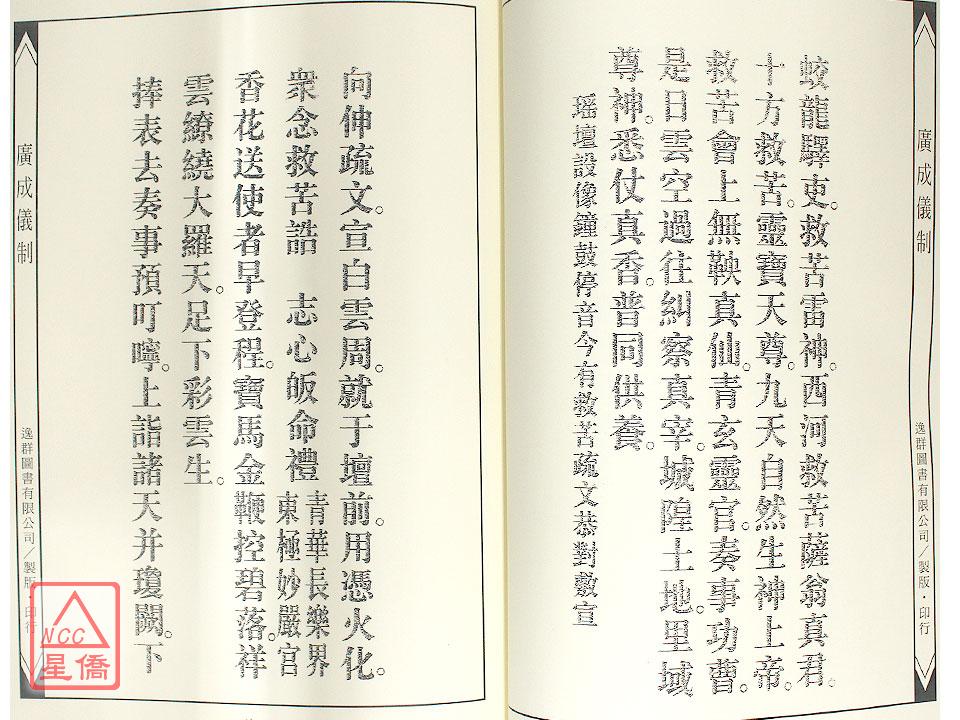 廣成儀制
逸群圖書有限公司／製版・印行
蛟龍驛吏。救苦雷神。西河救苦薩翁真君。
十方救苦。靈寶天尊。九天自然生神上帝。
救苦會上無鞅真仙。青玄靈官。奏事功曹。
是日雲空過往糾察真宰。城隍土地。里域
尊神。悉仗真香。普同供養。
瑶壇設像鐘鼓停音今有救苦疏文恭對敷宣
向伸疏文。宣白雲周。就于壇前。用憑火化。
衆念救苦誥　志心皈命禮　青華長樂界
東極妙嚴宮
香花送使者早登程。寶馬金鞭控碧落。祥
雲繚繞大羅天。足下彩雲生。
捧表去奏事預叮嚀。上詣諸天并瓊闕。下
廣成儀制
逸群圖書有限公司／製版・印行
NCC
星僑